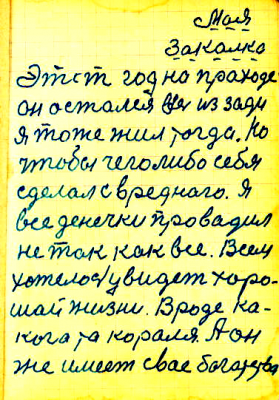 Моя
Закалка
Этот год на праходе
он остался из зади
я тоже жил тогда. Но
чтобы чеголибо себя
сделал с вреднаго. Я
все денечки провадил
не так как все. Всем
хотелось увидет хоро-
шай жизни. Вроде ка-
кога та кораля. А он
же имеет свае богатства